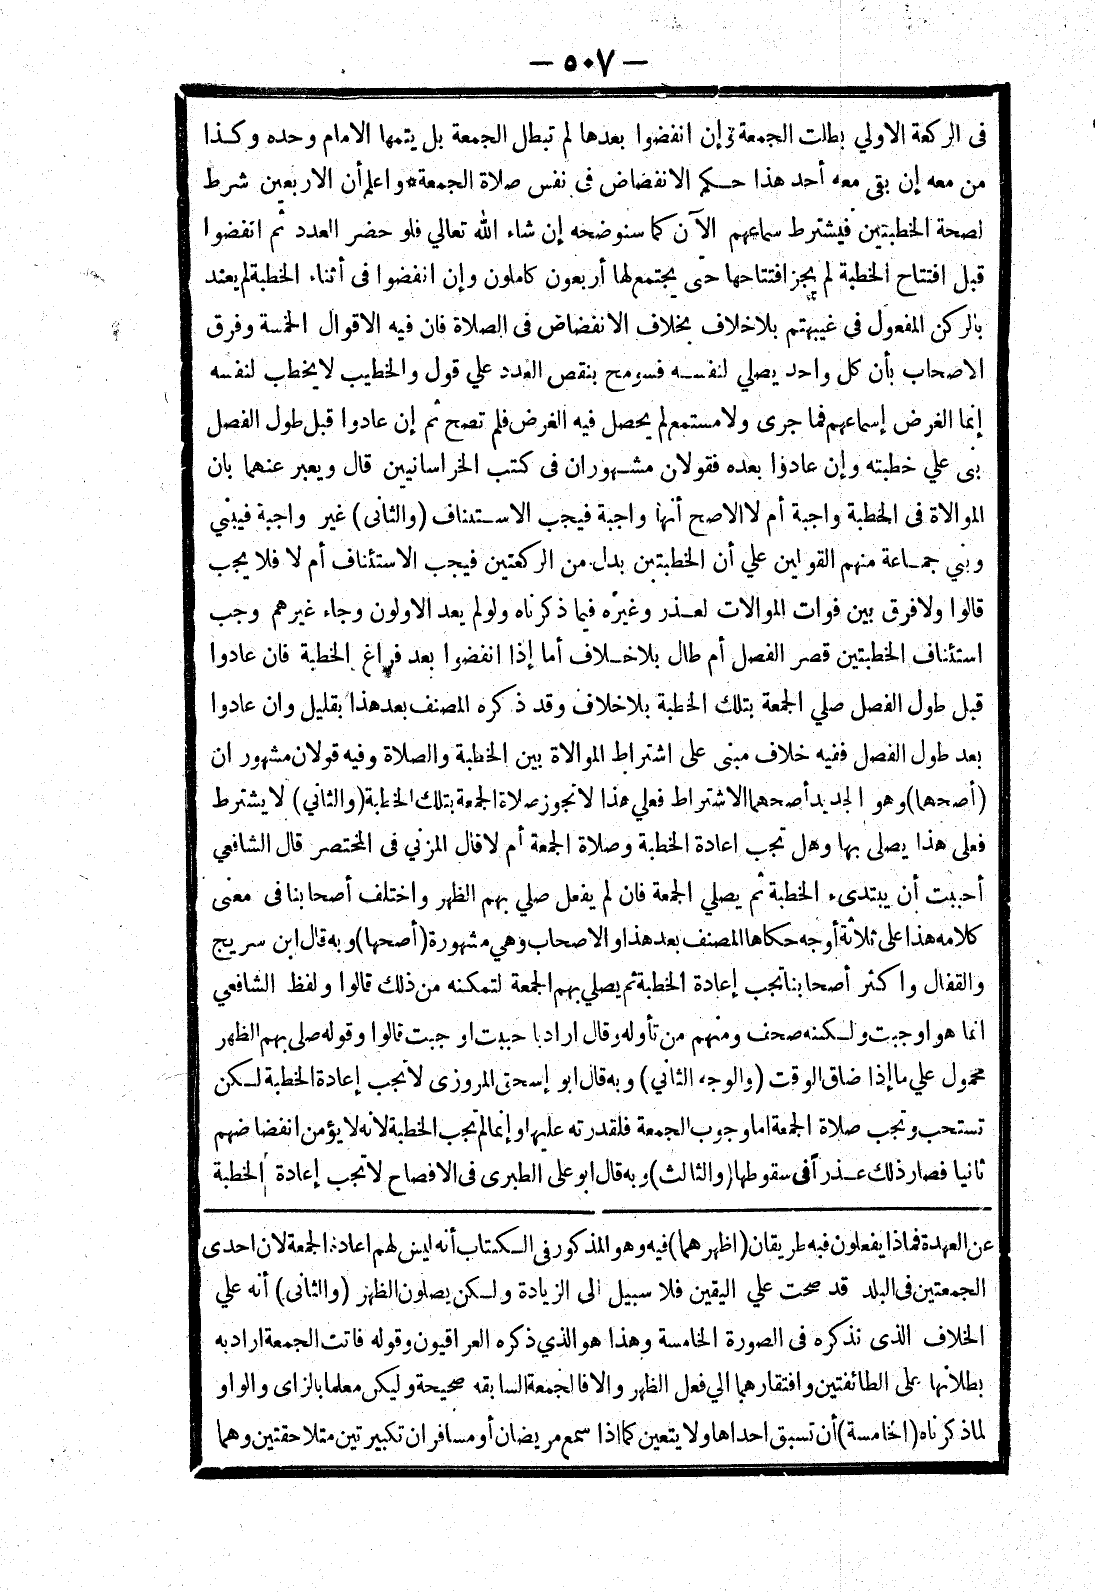 — ٥٠٧ —
فى الركعة الاولي بطلت الجمعة وإن انفضوا بعدها لم تبطل الجمعة بل يتمها الامام وحده وكذا
من معه إن بقى معه أحد هذا حكم الانفضاض فى نفس صلاة الجمعة * واعلم أن الاربعين شرط
لصحة الخطبتين فيشترط سماعهم الآن كما سنوضحه إن شاء الله تعالي فلو حضر العدد ثم انفضوا
قبل افتتاح الخطبة لم يجز افتتاحها حتى يجتمع لها أربعون كاملون وإن انفضوا فى أثناء الخطبة لم يعتد
بالركن المفعول فى غيبتهم بلاخلاف بخلاف الانفضاض فى الصلاة فان فيه الاقوال الخمسة وفرق
الاصحاب بأن كل واحد يصلي لنفسه فسومح بنقص العدد علي قول والخطيب لايخطب لنفسه
إنما الغرض إسماعهم فما جرى ولا مستمع لم يحصل فيه الغرض فلم تصح ثم إن عادوا قبل طول الفصل
بنى علي خطبته وإن عادوا بعده فقولان مشهوران فى كتب الخراسانيين قال ويعبر عنهما بان
الموالاة فى الخطبة واجبة أم لا الاصح أنها واجبة فيجب الاستئناف (والثانى) غير واجبة فيبني
وبني جماعة منهم القولين علي أن الخطبتين بدل من الركعتين فيجب الاستئناف أم لا فلا يجب
قالوا ولا فرق بين فوات الموالات لعذر وغيره فيما ذكرناه ولو لم يعد الاولون وجاء غيرهم وجب
استئناف الخطبتين قصر الفصل أم طال بلاخلاف أما إذا انفضوا بعد فراغ الخطبة فان عادوا
قبل طول الفصل صلي الجمعة بتلك الخطبة بلاخلاف وقد ذكره المصنف بعد هذا بقليل وان عادوا
بعد طول الفصل ففيه خلاف مبنى على اشتراط الموالاة بين الخطبة والصلاة وفيه قولان مشهوران
(أصحها) وهو الجديد أصحهما الاشتراط فعلي هذا لا تجوز صلاة الجمعة بتلك الخطبة (والثاني) لا يشترط
فعلى هذا يصلى بها وهل تجب اعادة الخطبة وصلاة الجمعة أم لا قال المزني فى المختصر قال الشافعي
أحببت أن يبتدىء الخطبة ثم يصلي الجمعة فان لم يفعل صلي بهم الظهر واختلف أصحابنا فى معنى
كلامه هذا على ثلاثة أوجه حكاها المصنف بعد هذا والاصحاب وهي مشهورة (أصحها) وبه قال ابن سريج
والقفال واكثر أصحابنا تجب إعادة الخطبة ثم يصلي بهم الجمعة لتمكنه من ذلك قالوا ولفظ الشافعي
انما هو اوجبت ولكنه صحف ومنهم من تأوله وقال اراد باحببت اوجبت قالوا وقوله صلى بهم الظهر
محمول علي ما إذا ضاق الوقت (والوجه الثاني) وبه قال ابو إسحق المروزى لا تجب إعادة الخطبة لكن
تستحب وتجب صلاة الجمعة اما وجوب الجمعة فلقدرته عليها وإنما لم تجب الخطبة لانه لا يؤمن انفضاضهم
ثانيا فصار ذلك عذرآ فى سقوطها (والثالث) وبه قال ابو على الطبرى فى الافصاح لا تجب إعادة الخطبة
عن العهدة فماذا يفعلون فيه طريقان (اظهرهما) فيه وهو المذكور فى الكتاب أنه ليس لهم اعادة الجمعة لان احدى
الجمعتين فى البلد قد صحت علي اليقين فلا سبيل الى الزيادة ولكن يصلون الظهر (والثانى) أنه علي
الخلاف الذى نذكره فى الصورة الخامسة وهذا هو الذي ذكره العراقيون وقوله فاتت الجمعة اراد به
بطلانها على الطائفتين وافتقارهما الي فعل الظهر والا فالجمعة السابقه صحيحة وليكن معلما بالزاى والواو
لما ذكرناه (الخامسة) أن تسبق احداهما ولا يتعين كما اذا سمع مريضان أو مسافران تكبيرتين متلاحقتين وهما